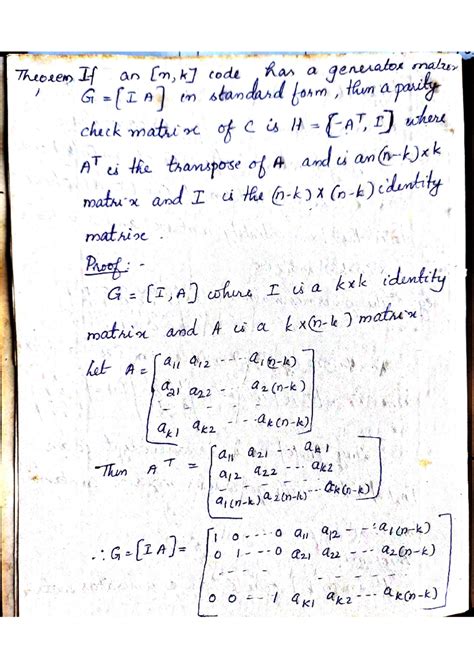 Theorem If an [n,k] code has a generator matrix
G = [I A] in standard form, then a parity
check matrix of C is H = [-Aᵀ, I] where
Aᵀ is the transpose of A and is an (n-k)×k
matrix and I is the (n-k) × (n-k) identity
matrix.
Proof: -
G = [I, A] where I is a k×k identity
matrix and A is a k×(n-k) matrix.
Let A = [a11 a12 --- a1(n-k)
a21 a22 --- a2(n-k)
- - - -
ak1 ak2 --- ak(n-k)]
Then Aᵀ = [a11 a21 --- ak1
a12 a22 --- ak2
- - - -
a1(n-k) a2(n-k) --- ak(n-k)]
∴ G = [I A] = [1 0 --- 0 a11 a12 --- a1(n-k)
0 1 --- 0 a21 a22 --- a2(n-k)
- - - -
0 0 -- 1 ak1 ak2 --- ak(n-k)]